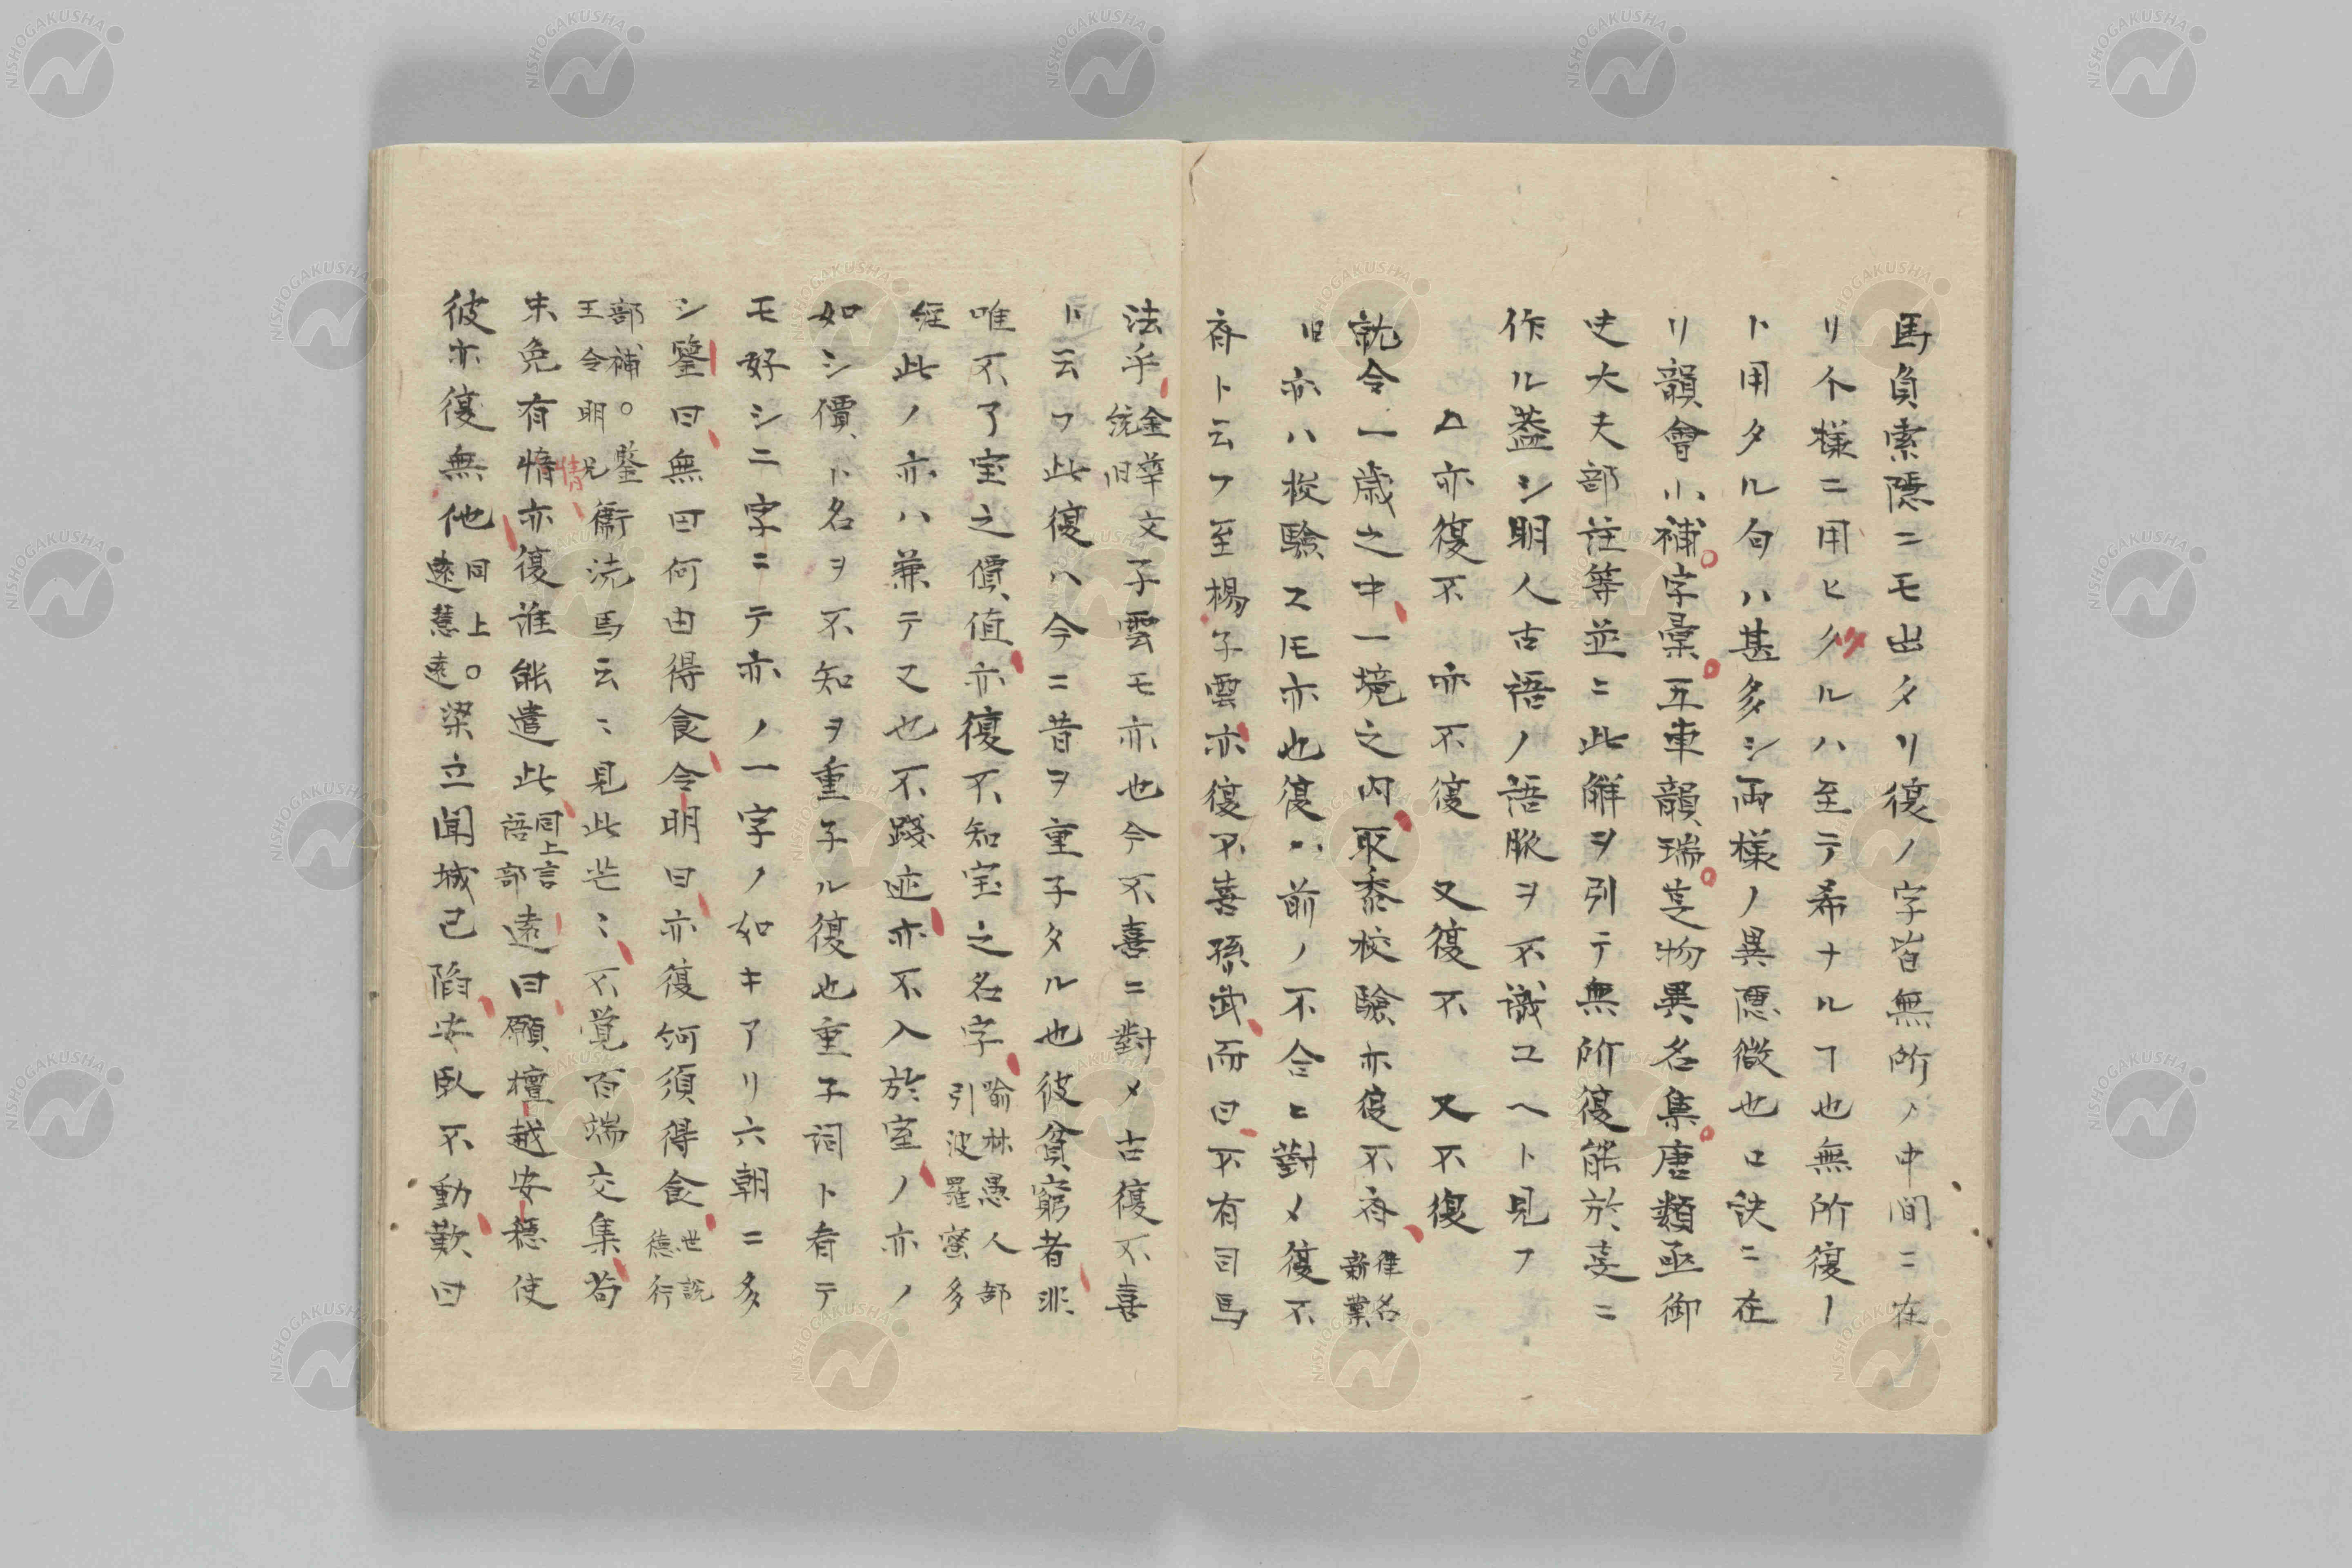 馬負索隱ニモ出タリ復ノ字皆無所ノ中間ニ在
リ个樣ニ用ヒタルハ至テ希ナルヿ也無所復ー
ト用タル句ハ甚多シ両樣ノ異隱微也口訣ニ在
リ韻會小補字彙五車韻瑞芟物異名集唐類函御
史大夫部註等並ニ此解ヲ引テ無所復能於是ニ
作ル蓋シ明人古語ノ語脉ヲ不識ユヘト見フ
△亦復不 亦不復 又復不 又不復
就令一歳之中一境之内取黍校驗亦復不齊
律名
新業
旧亦ハ校驗スㇳモ亦也復ハ前ノ不合ヒ對メ復不
齊ト云フ至楊子雲亦復不喜孫武而曰不有司馬
法乎
金華文
統旧
子雲モ亦也今不喜ニ對メ古復不喜
ト云フ此復ハ今ニ昔ヲ重子タル也彼貧窮者非
唯不了宝之價值亦復不知宝之名字
喻林愚人部
引波羅蜜多
經
此ノ亦ハ兼テ又也不踐迹亦不入於室ノ亦ノ
如シ價ト名ヲ不知ヲ重子ル復也重子詞ト看テ
モ好シ二字ニテ亦ノ一字ノ如キアリ六朝ニ多
シ鑒曰無曰何由得食令明曰亦復何須得食
世說
德行
部補。鑒
王令明兄
衞洗馬云〻見此芒〻不覚百端交集苟
未免有情亦復誰能遣此
同上言
語部
遠曰願檀越安穏使
彼亦復無他
同上。
遠慧遠
梁立聞城已陷安臥不動歎曰
NISHOGAKUSHA